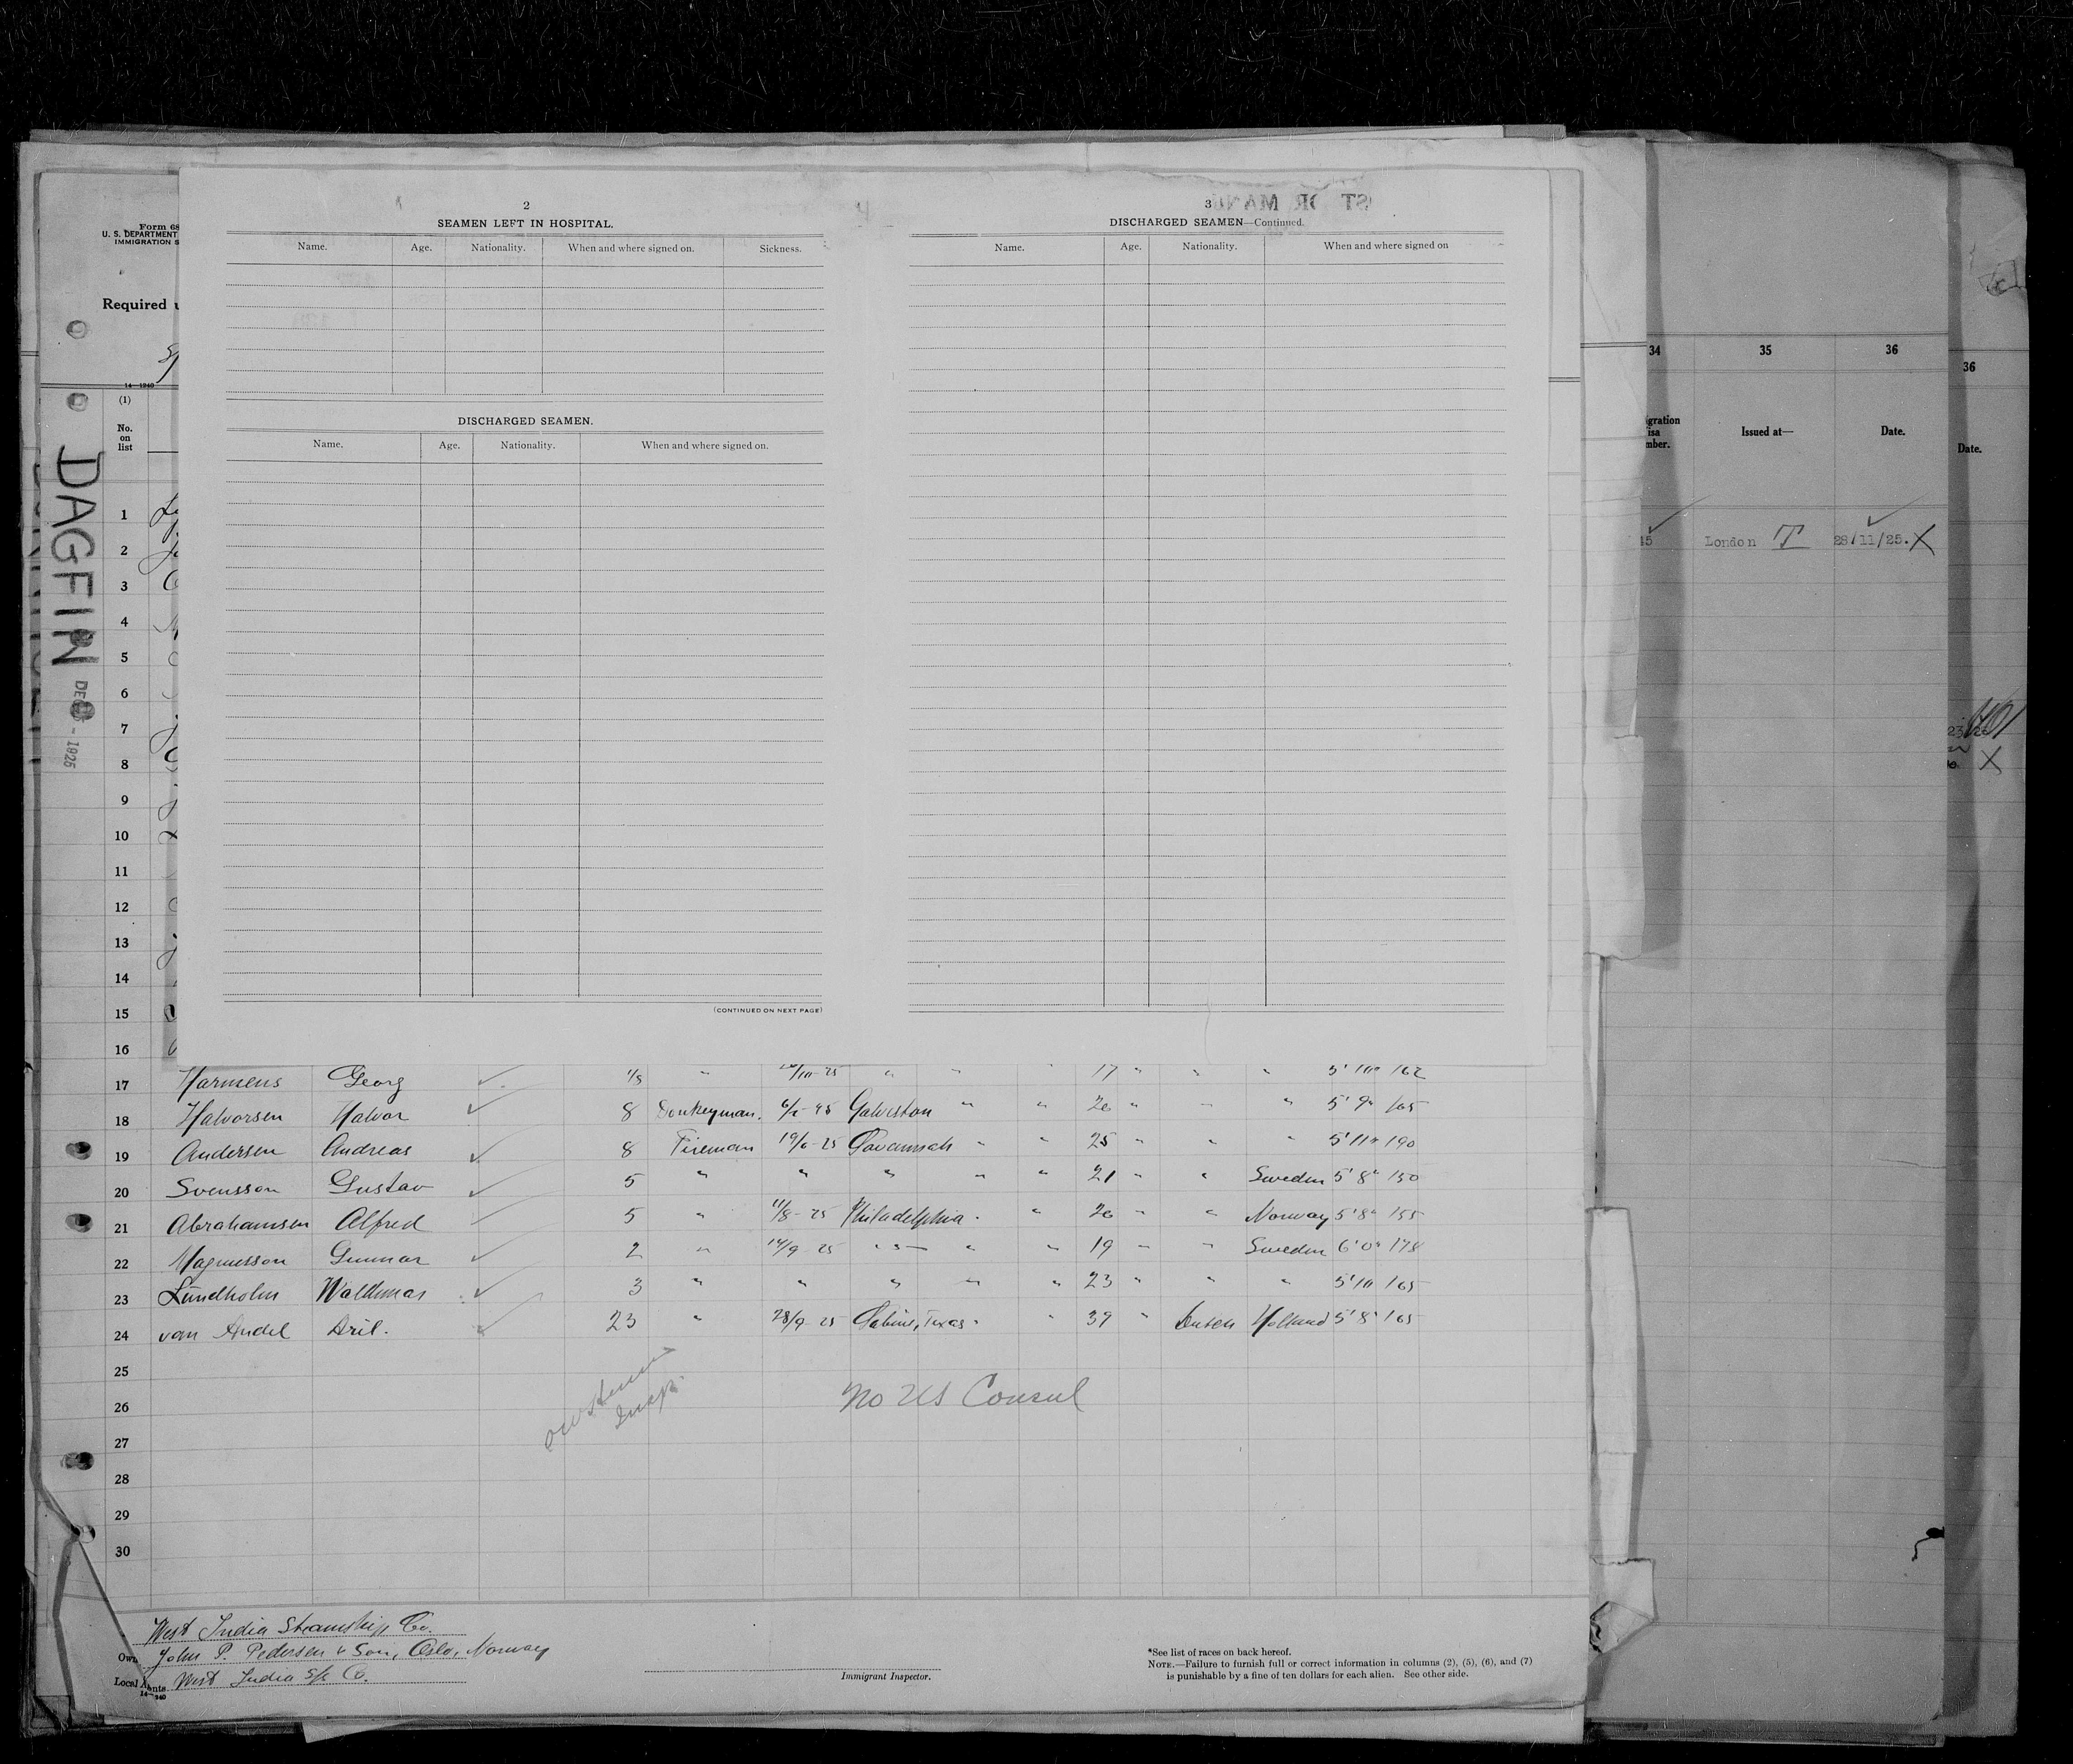 2
SEAMEN LEFT IN HOSPITAL.
Name. Age. Nationality. When and where signed on. Sickness.
DISCHARGED SEAMEN.
Name. Age. Nationality. When and where signed on.
(CONTINUED ON NEXT PAGE)
3
DISCHARGED SEAMEN—Continued.
Name. Age. Nationality. When and where signed on
Form 68
U. S. DEPARTMENT
IMMIGRATION S
Required
14—1940
(1)
No.
on
list
DAGFIN
1925
1
2
3
4
5
6
7
8
9
10
11
12
13
14
15
16
17 Harmens Georg 1/8 " 17 " " " 5' 10" 162
18 Halvorsen Halvor 8 Donkeyman. Galveston " " 26 " " " 5' 9" 165
19 Andersen Andreas 8 Fireman 19/6-25 Savannah " " 25 " " " 5' 11" 190
20 Svensson Gustav 5 " " " " " 21 " " Sweden 5' 8" 150
21 Abrahamsen Alfred 5 " 11/8-25 Philadelphia " " 26 " " Norway 5' 8" 155
22 Magnusson Gunnar 2 " 14/9 25 " " " 19 " " Sweden 6' 0" 178
23 Lundholm Waldemar 3 " " " " " 23 " " " 5' 10 165
24 van Andel Aril. 23 " 28/9-25 Sabine, Texas " " 39 " Dutch Holland 5' 8" 165
25
26 No US Consul
27
28
29
30
West India Steamship Co.
John P. Pedersen & Son, Oslo, Norway
Local West India S/S Co.
Immigrant Inspector.
*See list of races on back hereof.
NOTE.—Failure to furnish full or correct information in columns (2), (5), (6), and (7)
is punishable by a fine of ten dollars for each alien. See other side.
34 35 36
Issued at— Date.
London T 28/11/25. X
36
Date.
X